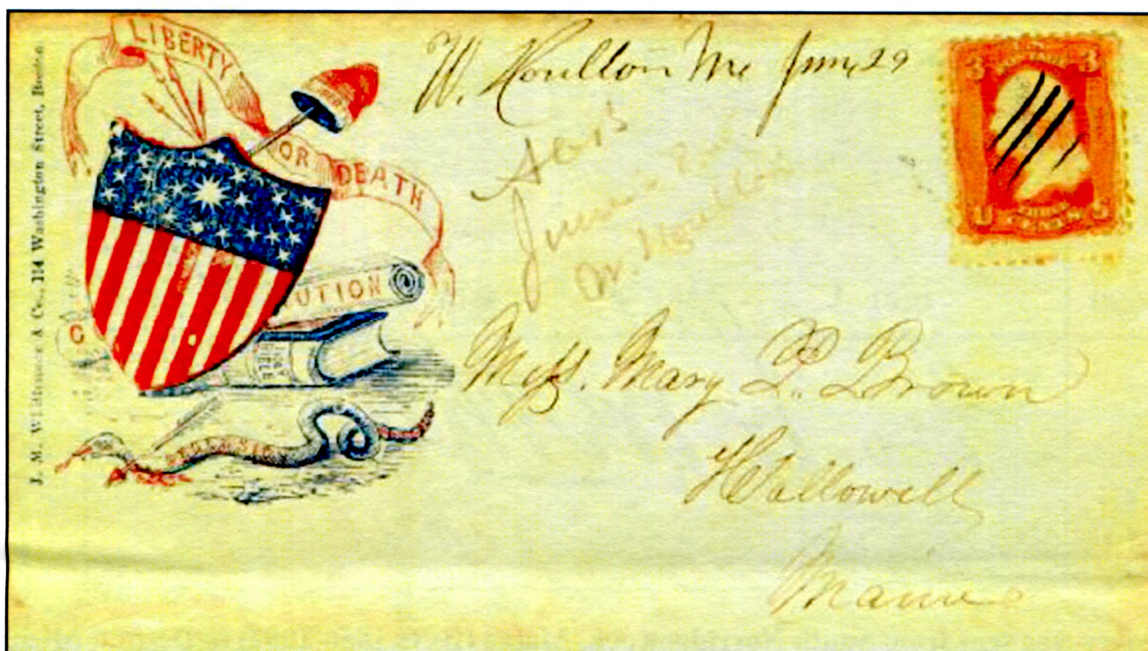 J. M. Whittemore & Co., 114 Washington Street, Boston.
LIBERTY
OR DEATH
C UTION
HOLY
BIBLE
W. Houlton Me June 29
June
W. Houlton
3 3
U S
Miss. Mary L. Brown
Hallowell
Maine